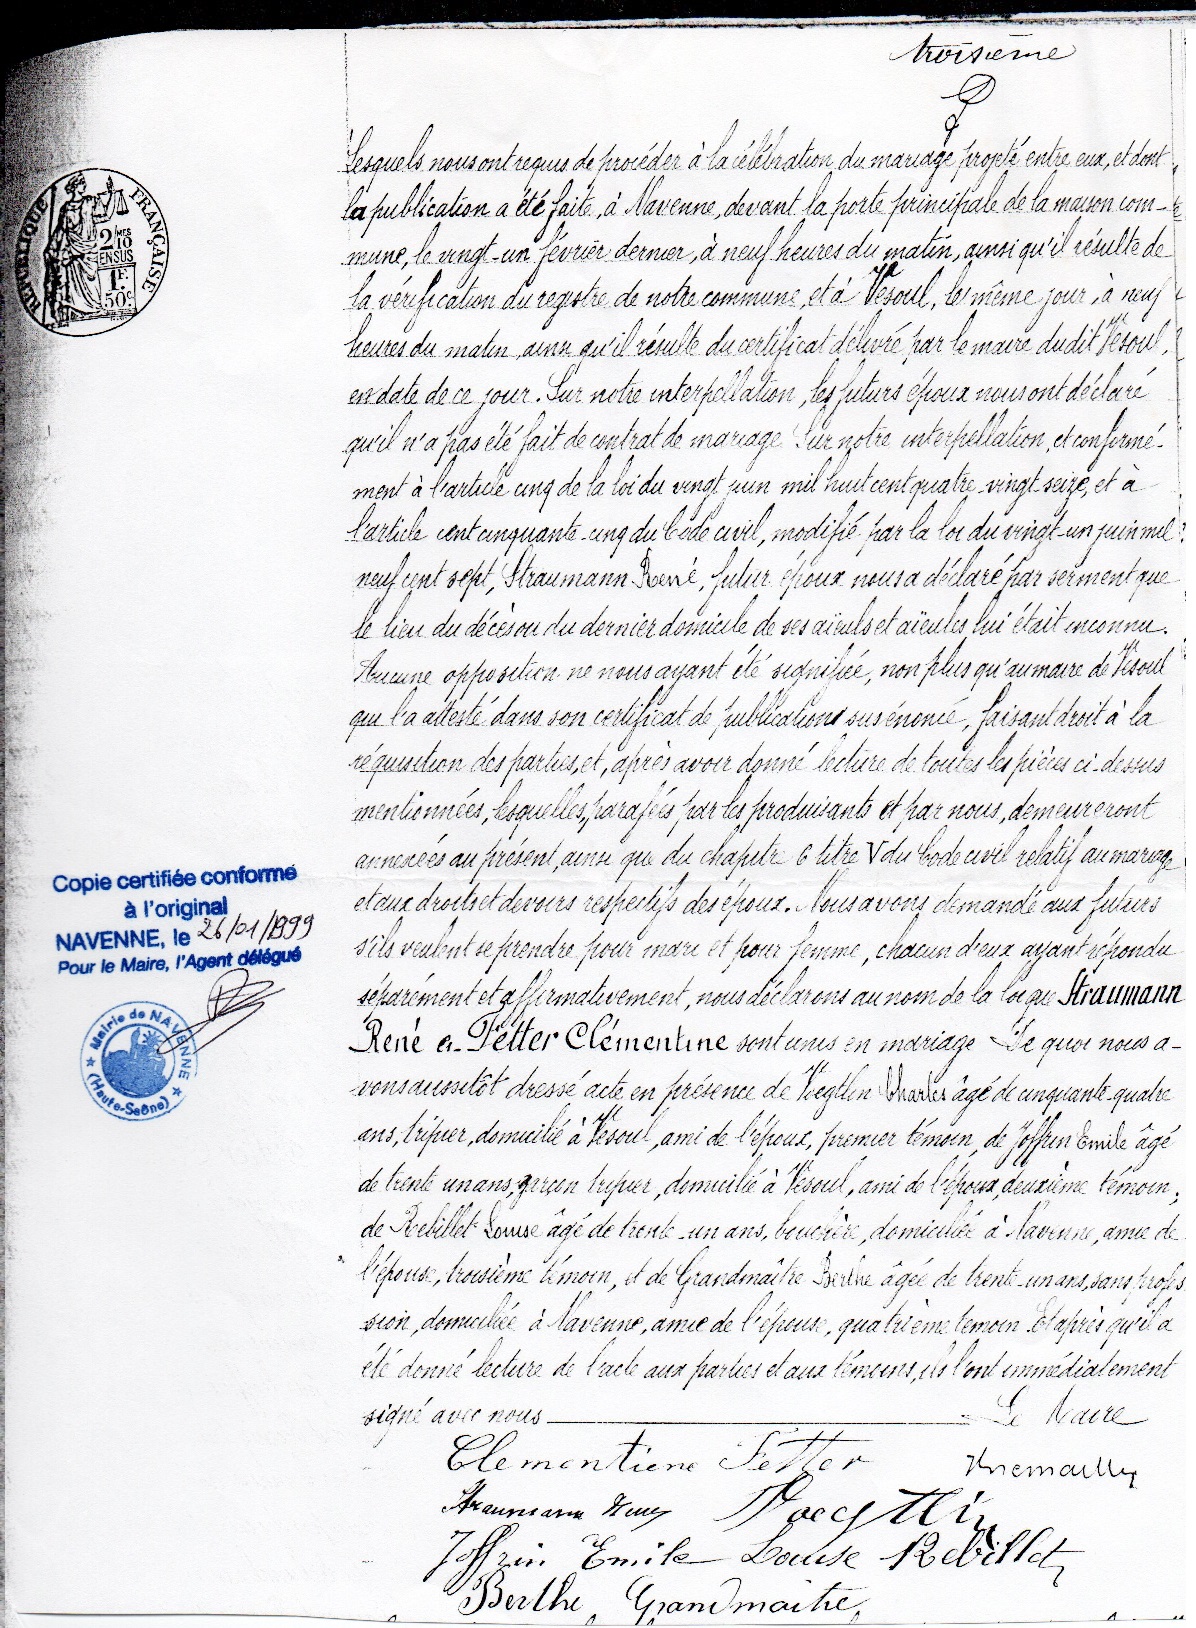 troisième
Lesquels nous ont requis de procéder à la célébration du mariage projeté entre eux, et dont
la publication a été faite, à Navenne, devant la porte principale de la maison com-
mune, le vingt-un février dernier, à neuf heures du matin, ainsi qu'il résulte de
la vérification du registre de notre commune, et à Vesoul, le même jour, à neuf
heures du matin, ainsi qu'il résulte du certificat délivré par le maire du dit Vesoul,
en date de ce jour. Sur notre interpellation, les futurs époux nous ont déclaré
qu'il n'a pas été fait de contrat de mariage. Sur notre interpellation, et conformé-
ment à l'article cinq de la loi du vingt juin mil huit cent quatre-vingt-seize, et à
l'article cent cinquante-cinq du Code civil, modifié par la loi du vingt-un juin mil
neuf cent sept, Straumann René, futur époux nous a déclaré par serment que
le lieu du décès ou du dernier domicile de ses aïeuls et aïeules lui était inconnu.
Aucune opposition ne nous ayant été signifiée, non plus qu'au maire de Vesoul
qui l'a attesté dans son certificat de publications susénoncé, faisant droit à la
réquisition des parties, et, après avoir donné lecture de toutes les pièces ci-dessus
mentionnées, lesquelles, parafées par les produisants et par nous, demeureront
annexées au présent, ainsi que du chapitre 6 titre V du Code civil relatif au mariage
et aux droits et devoirs respectifs des époux. Nous avons demandé aux futurs
s'ils veulent se prendre pour mari et pour femme, chacun d'eux ayant répondu
séparément et affirmativement, nous déclarons au nom de la loi que Straumann
René et Fetter Clémentine sont unis en mariage De quoi nous a-
vons aussitôt dressé acte, en présence de Voegtlin Charles âgé de cinquante-quatre
ans, tripier, domicilié à Vesoul, ami de l'époux, premier témoin, de Joffrin Emile âgé
de trente un ans, garçon tripier, domicilié à Vesoul, ami de l'époux, deuxième témoin;
de Rebillet Louise âgée de trente-un ans, bouchère, domiciliée à Navenne, amie de
l'épouse, troisième témoin, et de Grandmaître Berthe âgée de trente-un ans, sans profes
sion, domiciliée à Navenne, amie de l'épouse, quatrième témoin. Et après qu'il a
été donné lecture de l'acte aux parties et aux témoins, ils l'ont immédiatement
signé avec nous Le Maire
Clementiene Fetter
Straumann
Voegtlin
Joffrin Emile Louise Rebillet
Berthe Grandmaitre
RÉPUBLIQUE FRANÇAISE
2/10MES
EN SUS
1F.
50c
Copie certifiée conforme
à l'original
NAVENNE, le 26/01/1999
Pour le Maire, l'Agent délégué
Mairie de NAVENNE
(Haute-Saône)